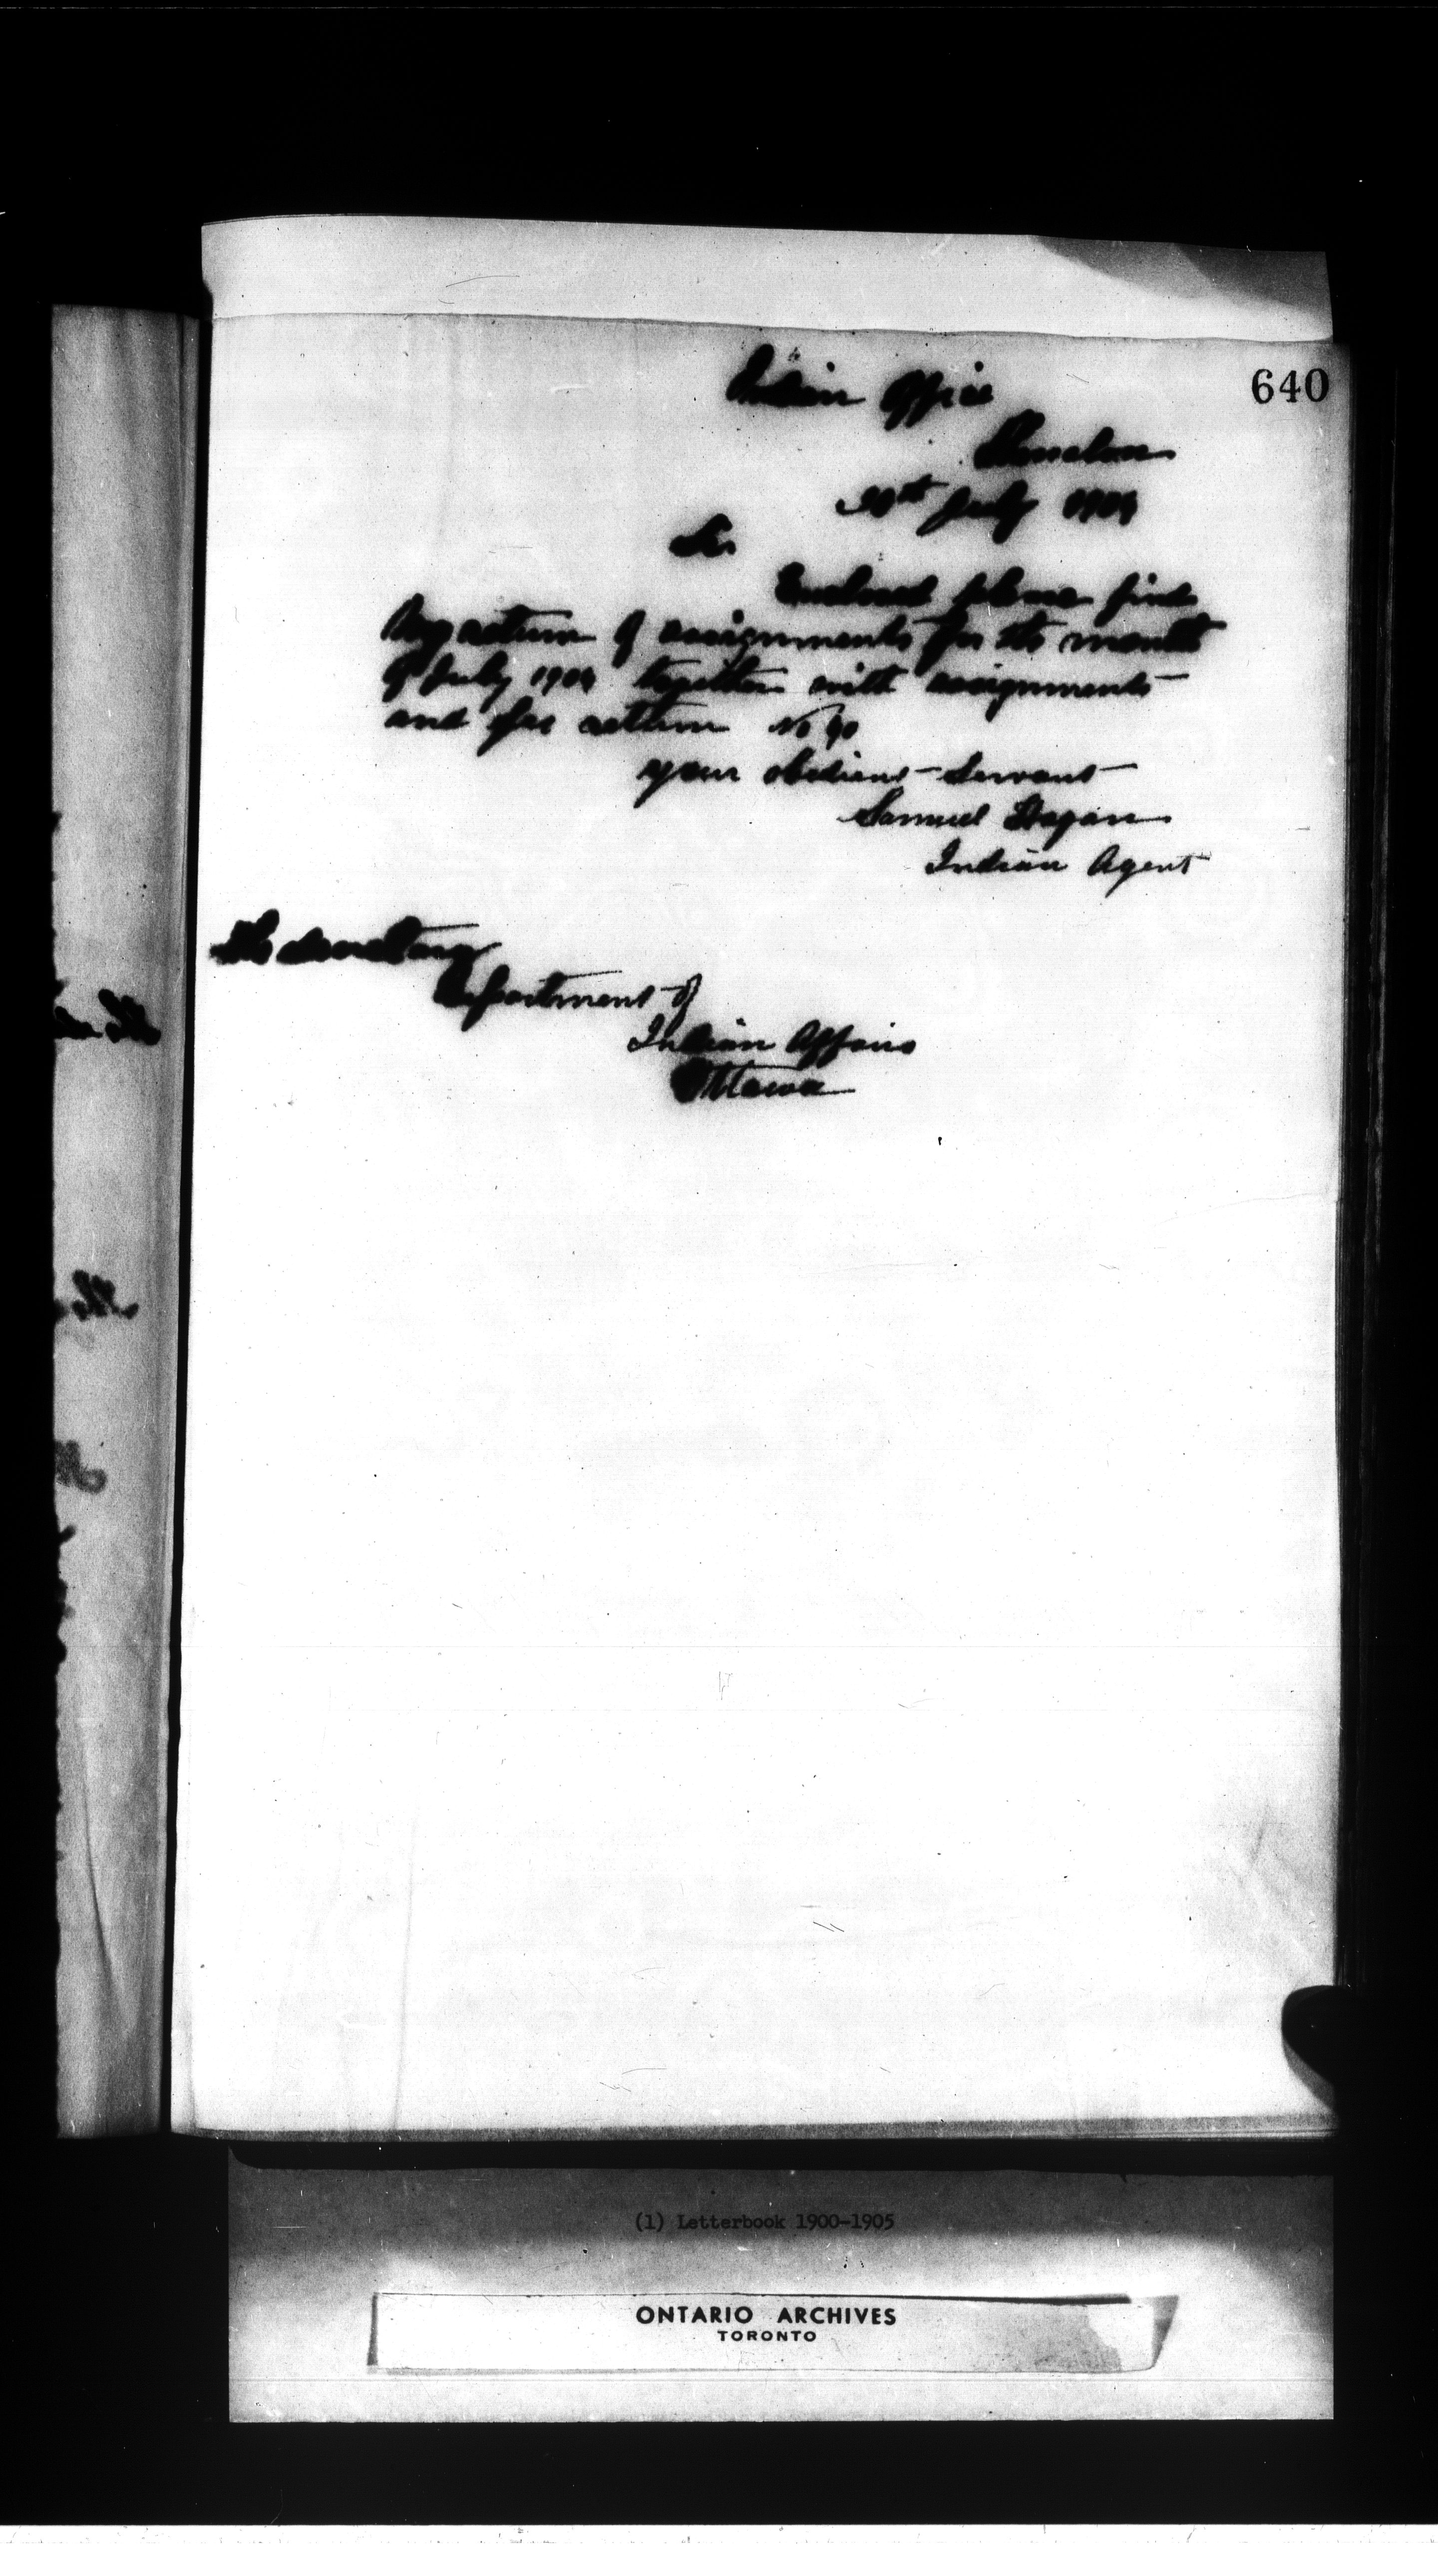 640
Indian Office
Thessalon
July 1904
Sir
Enclosed please find
my return of assignments for the month
of July 1904 together with assignments
and fee return No
your obedient Servant
Samuel Hagan
Indian Agent
The Secretary
Department of
Indian Affairs
Ottawa
(1) Letterbook 1900-1905
ONTARIO ARCHIVES
TORONTO